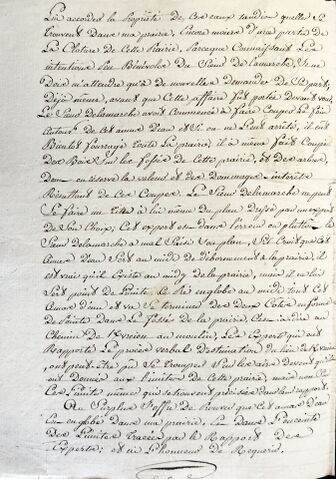 Lui accorder la Propriété de ces eaux tandis quelle se
trouvent dans ma prairie, Encore moins d'une partie de
La Cloture de cette Prairie, Parceque Connaissant les
intentions peu Bénévoles du Sieur de Lamarche, Je ne
Dois m'attendre qu'à de nouvelles demandes de Sa part,
déja même, avant que Cette affaire fut portée devant vous,
Le Sieur delamarche avait Commencé à faire Couper le foin
Autour de cet amas d'eau et Si on ne l'eut arrêté, il eut
Bientot fourragé toute la prairie, il a même fait Couper
des Bois Sur les fossés de Cette prairie, et des arbres,
Dont on réserve la valeur et des dommages-intérêts
Résultant de ces Coupes. Le Sieur delamarche ne peut
Se faire un titre à lui même du plan dressé par un expert
de Son Choix, Cet expert est dans l'erreur ou plutôt le
Sieur delamarche a mal Saisi Son plan, Il Croit que cet
Amas d'eau Sert au midi de débornement à la prairie, il
est vrai qu'il Existe au midi de la prairie, mais il ne lui
Sert point de Limite, Elle englobe au midi tout cet
Amas d'eau et va Se terminer des deux Cotés en forme
de Pointe dans le fossé de la prairie, C'est-à-dire au
Chemin de au moulin, Les Experts qui ont
Rapporté le procès verbal d'estimation du lieu de
ont peut-être pu Se tromper Sur les aires devant qu'ils
ont Donner aux Limites de cette prairie, mais non Sur
Ces Limites même qui se trouvent précisées dans leur rapport
Au Surplus J'offre de prouver que cet amas d'eau
Est englobé dans ma prairie, Et dans L'enceinte
des Limites tracées par le Rapport des
Experts; et ai l'honneur de Requérir.